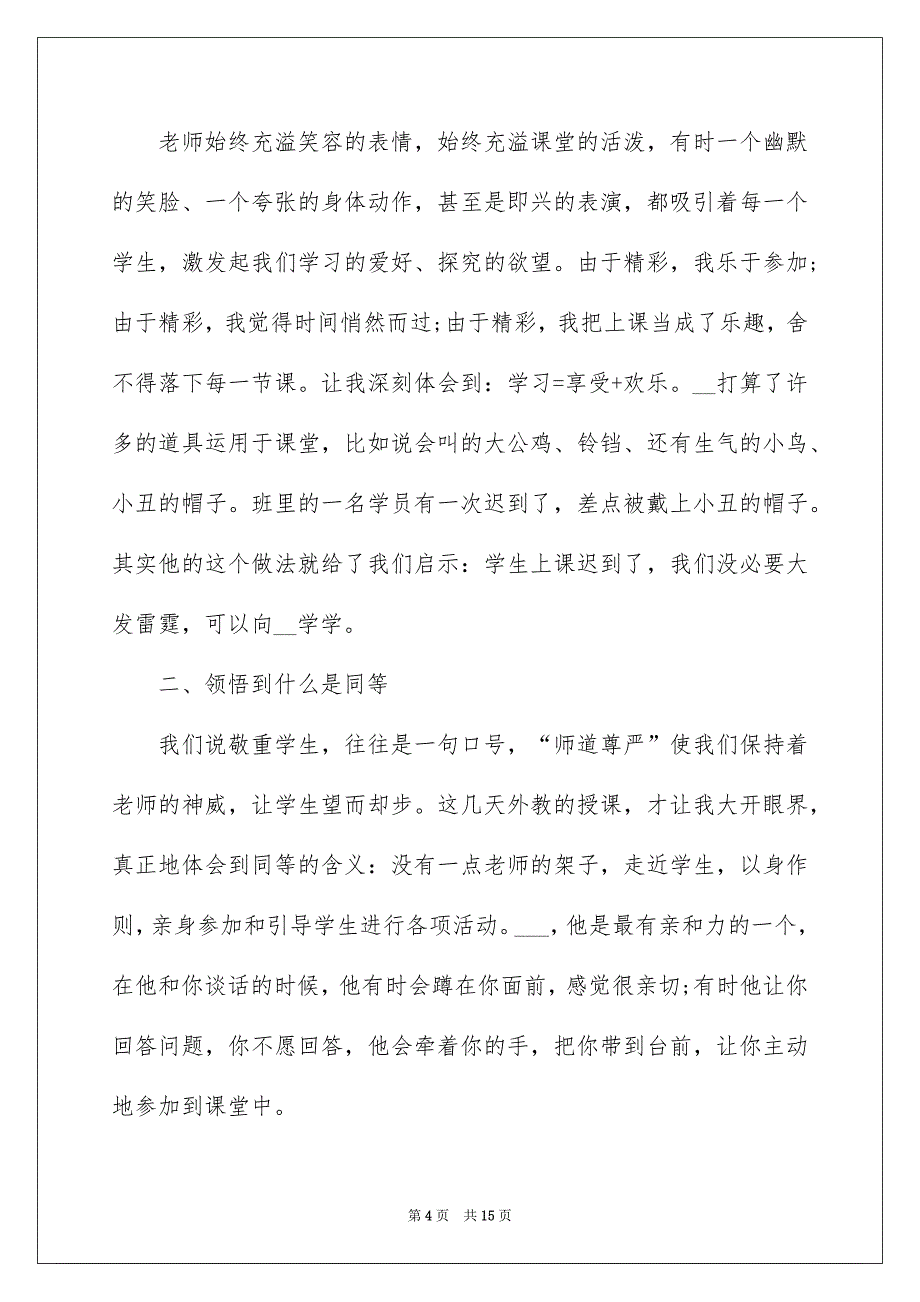 老师始终充溢笑容的表情，始终充溢课堂的活泼，有时一个幽默
的笑脸、一个夸张的身体动作，甚至是即兴的表演，都吸引着每一个
学生，激发起我们学习的爱好、探究的欲望。由于精彩，我乐于参加;
由于精彩，我觉得时间悄然而过;由于精彩，我把上课当成了乐趣，舍
不得落下每一节课。让我深刻体会到：学习=享受+欢乐。__打算了许
多的道具运用于课堂，比如说会叫的大公鸡、铃铛、还有生气的小鸟、
小丑的帽子。班里的一名学员有一次迟到了，差点被戴上小丑的帽子。
其实他的这个做法就给了我们启示：学生上课迟到了，我们没必要大
发雷霆，可以向__学学。
二、领悟到什么是同等
我们说敬重学生，往往是一句口号，“师道尊严”使我们保持着
老师的神威，让学生望而却步。这几天外教的授课，才让我大开眼界，
真正地体会到同等的含义：没有一点老师的架子，走近学生，以身作
则，亲身参加和引导学生进行各项活动。___，他是最有亲和力的一个，
在他和你谈话的时候，他有时会蹲在你面前，感觉很亲切;有时他让你
回答问题，你不愿回答，他会牵着你的手，把你带到台前，让你主动
地参加到课堂中。
第 4 页 共 15 页